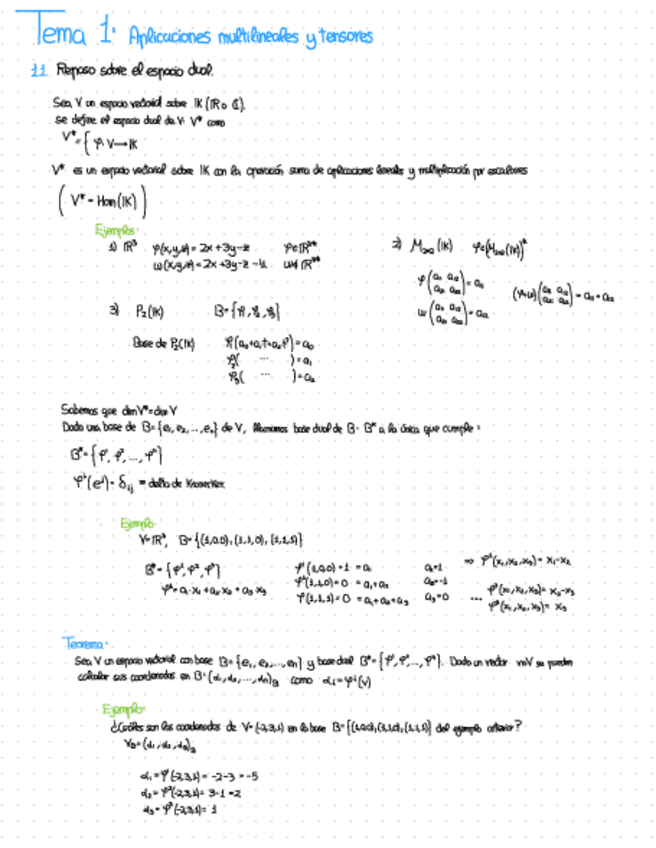 Tema 1: Aplicaciones multilineales y tensores
1.1. Repaso sobre el espacio dual.
Sea V un espacio vectorial sobre IK (IR o ℂ).
se define el espacio dual de V: V* como
V* = { φ: V → IK
V* es un espacio vectorial sobre IK con la operación suma de aplicaciones lineales y multiplicación por escalares
( V* = Hom(IK) )
Ejemplos:
1) IR³ φ(x,y,z) = 2x + 3y - z φ ∈ IR³*
ω(x,y,z) = 2x + 3y - z - 1/2 ω∉ IR³*
2) M₂ₓ₂(IK) φ ∈ (M₂ₓ₂(IK))*
φ(a₁₁ a₁₂ a₂₁ a₂₂) = a₁₁
ω(a₁₁ a₁₂ a₂₁ a₂₂) = a₂₂
(φ+ω)(a₁₁ a₁₂ a₂₁ a₂₂) = a₁₁ + a₂₂
3) P₂(IK) B = {φ₁, φ₂, φ₃}
Base de P₂(IK) φ₁(a₀+a₁t+a₂t²) = a₀
φ₂( ... ) = a₁
φ₃( ... ) = a₂
Sabemos que dim V* = dim V
Dada una base de B = {e₁, e₂, ..., eₙ} de V, llamamos base dual de B - B* a la única que cumple:
B* = {φ¹, φ², ..., φⁿ}
φⁱ(eʲ) = δᵢⱼ = delta de Kronecker
Ejemplo:
V = IR³, B = {(1,0,0), (1,1,0), (1,1,1)}
B* = {φ¹, φ², φ³}
φ¹ = a₁·x₁ + a₂·x₂ + a₃·x₃
φ¹(1,0,0) = 1 = a₁ a₁ = 1 ⇒ φ¹(x₁,x₂,x₃) = x₁ - x₂
φ¹(1,1,0) = 0 = a₁ + a₂ a₂ = -1 φ²(x₁,x₂,x₃) = x₂ - x₃
φ¹(1,1,1) = 0 = a₁ + a₂ + a₃ a₃ = 0 ... φ³(x₁,x₂,x₃) = x₃
Teorema:
Sea V un espacio vectorial con base B = {e₁, e₂, ..., eₙ} y base dual B* = {φ¹, φ², ..., φⁿ}. Dado un vector v∈V se pueden
calcular sus coordenadas en B: (α₁, α₂, ..., αₙ)_B como αᵢ = φⁱ(v)
Ejemplo:
¿Cuáles son las coordenadas de V = (-2,3,1) en la base B = {(1,0,0), (1,1,0), (1,1,1)} del ejemplo anterior?
V_B = (α₁, α₂, α₃)_B
α₁ = φ¹(-2,3,1) = -2-3 = -5
α₂ = φ²(-2,3,1) = 3-1 = 2
α₃ = φ³(-2,3,1) = 1